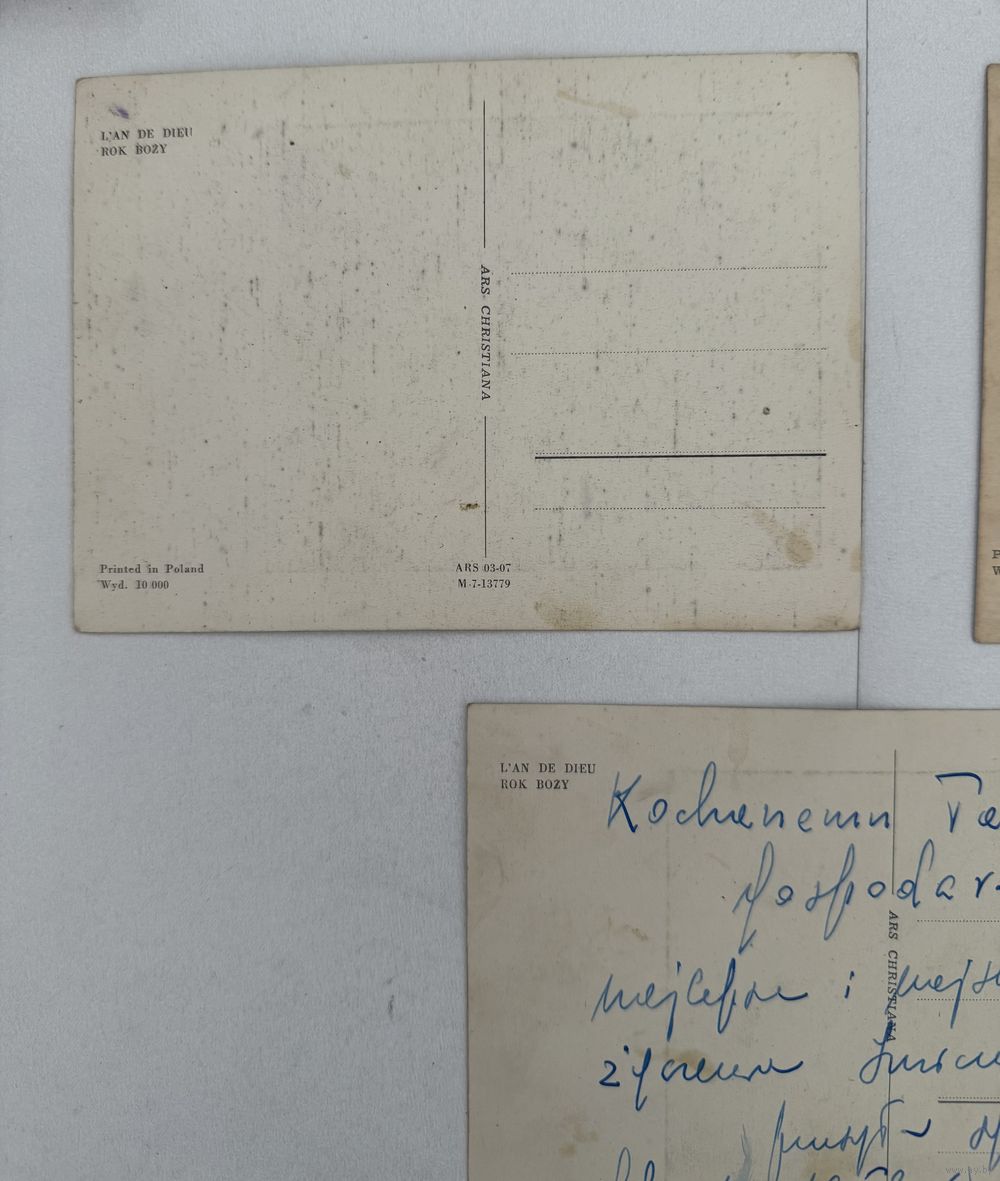 L'AN DE DIEU
ROK BOŻY
ARS CHRISTIANA
Printed in Poland
Wyd. 10 000
ARS 03-07
M-7-13779
P
W
L'AN DE DIEU
ROK BOŻY
ARS CHRISTIANA
Kochanemu
Gospodar
najlepsze i
życzenia
www.ay.by